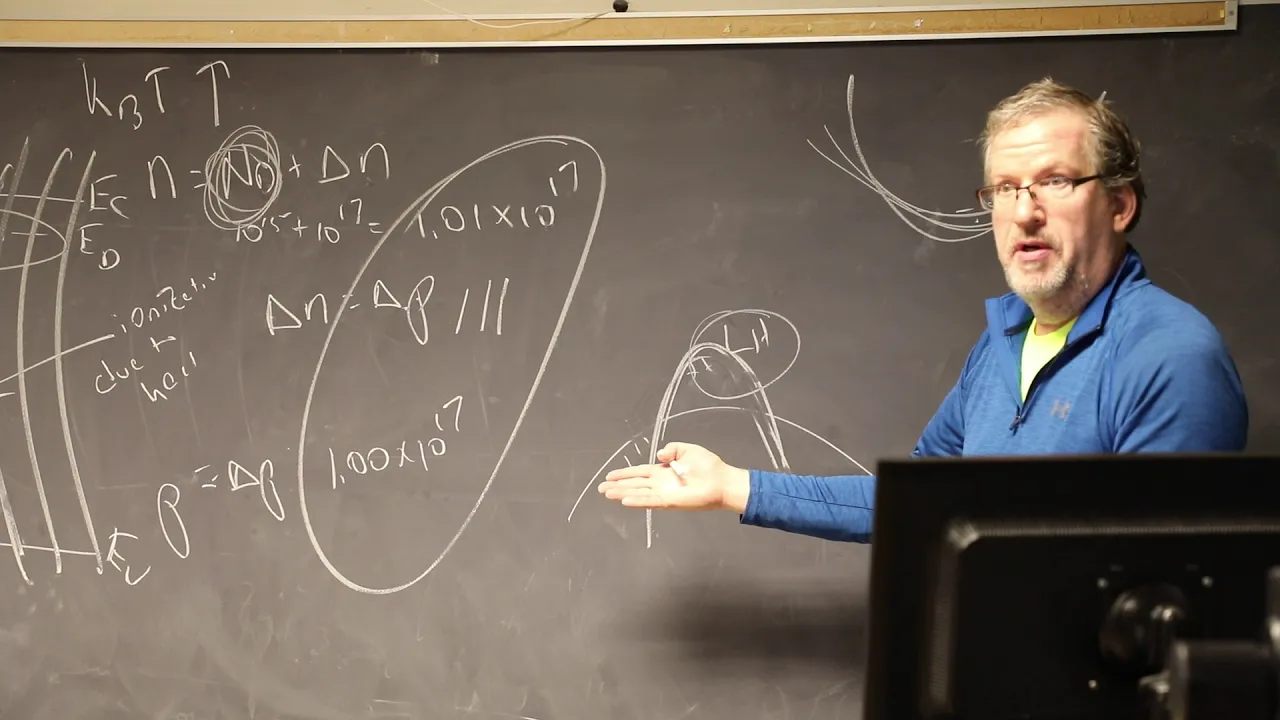 k_B T T
E_C n = N_D + Δn
E_D 10^15 + 10^17 = 1.01 × 10^17
ionization
due to
heat
Δn = Δp ///
1.00 × 10^17
p = Δp
LH